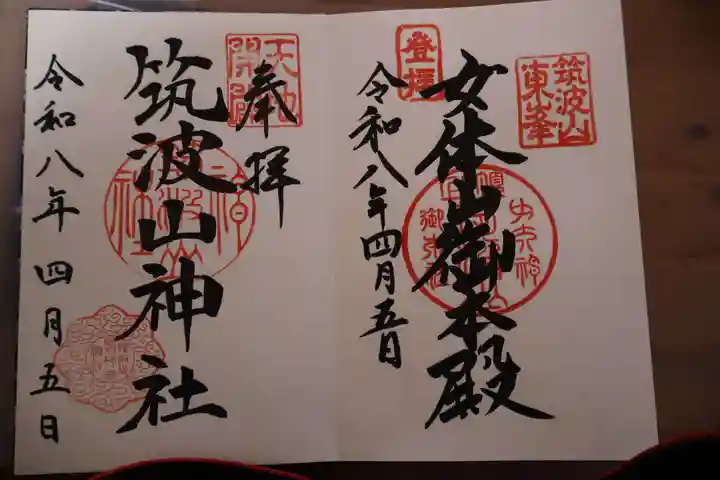 筑波山
東峯
登拝
女体山御本殿
令和八年四月五日
天地
開闢
奉拝
筑波山神社
令和八年四月五日